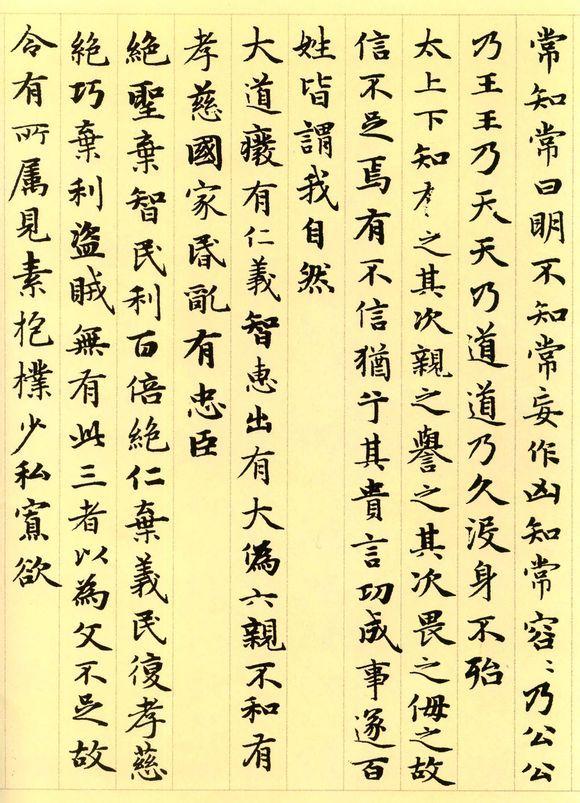 常知常曰明不知常妄作凶知常容〻乃公公
乃王王乃天天乃道道乃久沒身不殆
太上下知有之其次親之譽之其次畏之侮之故
信不足焉有不信猶乎其貴言功成事遂百
姓皆謂我自然
大道癈有仁義智惠出有大偽六親不和有
孝慈國家昏亂有忠臣
絕聖棄智民利百倍絕仁棄義民復孝慈
絕巧棄利盜賊無有此三者以為文不足故
令有所属見素抱樸少私寡欲